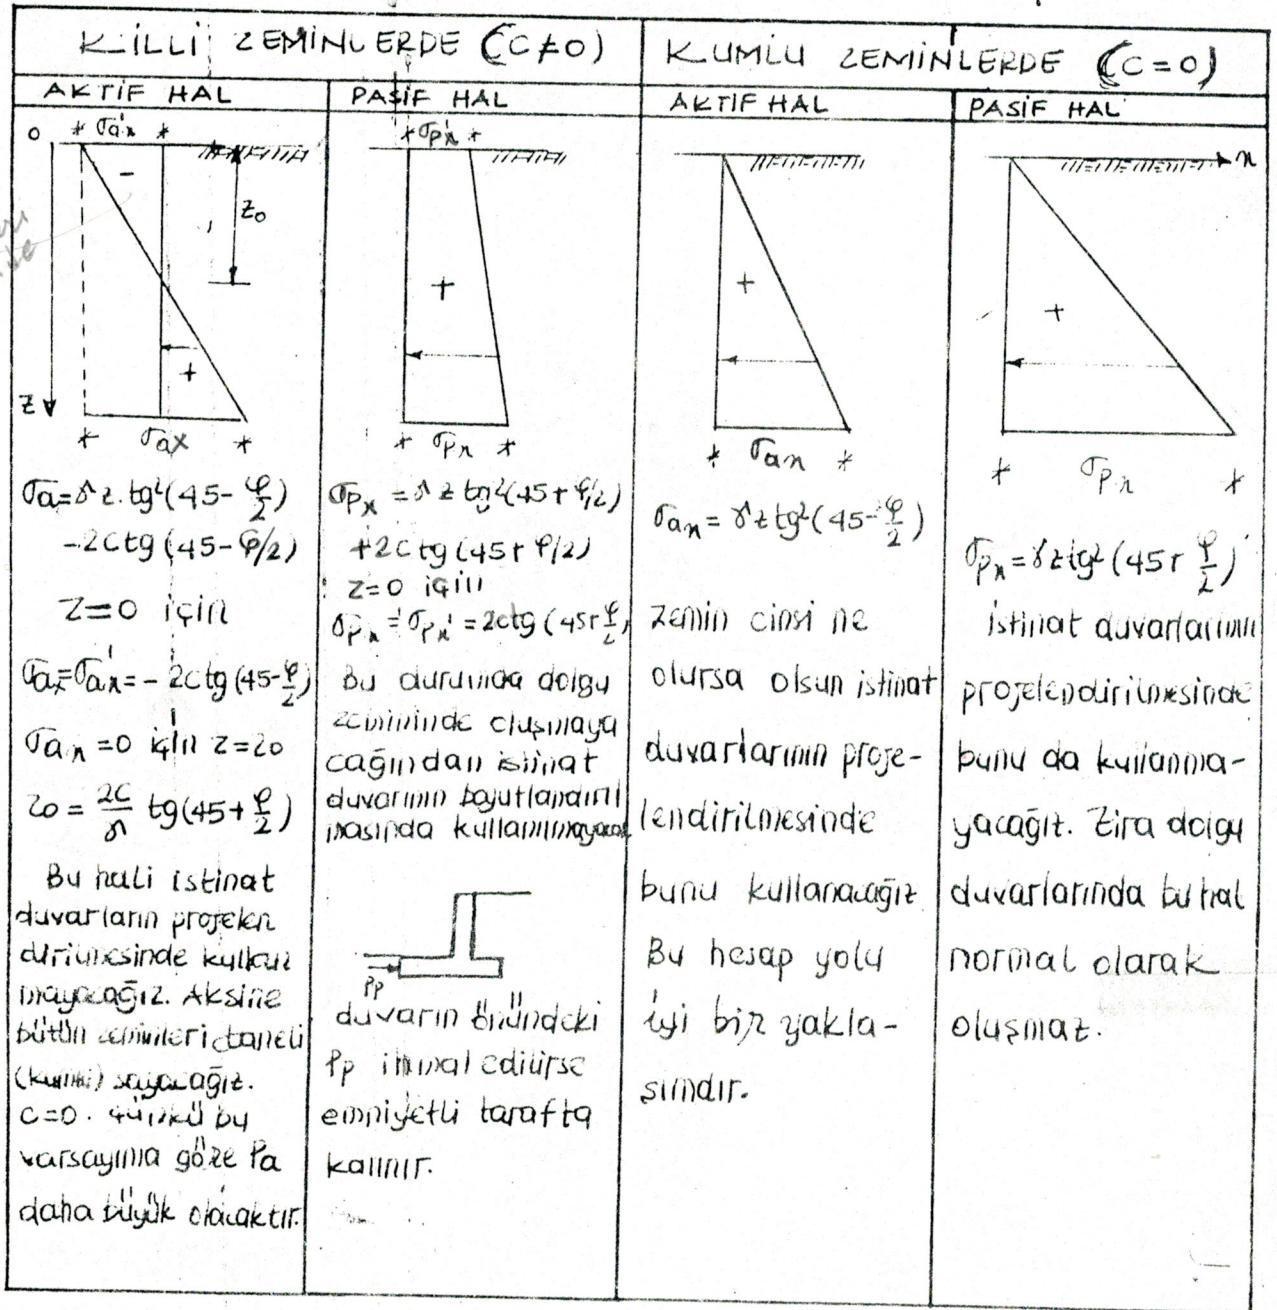 KİLLİ ZEMİNLERDE (C≠0)
AKTİF HAL
σa'x
0
-
z0
+
z
σax
σa=γz.tg²(45-φ/2)
-2ctg(45-φ/2)
Z=0 için
σax=σa'x=-2ctg(45-φ/2)
σax=0 için z=z0
z0=2c/γ tg(45+φ/2)
Bu hali istinat
duvarların projelen
dirilmesinde kullan
mayacağız. Aksine
bütün zeminleri taneli
(kumlu) sayacağız.
c=0. Çünkü bu
varsayıma göre Pa
daha büyük olacaktır.
PASİF HAL
σp'x
+
σpx
σpx=γztg²(45+φ/2)
+2ctg(45+φ/2)
z=0 için
σpx=σpx'=2ctg(45+φ/2)
Bu durumda dolgu
zemininde oluşmaya
cağından istinat
duvarının boyutlandırıl
masında kullanılmayacak
Pp
duvarın önündeki
Pp ihmal edilirse
emniyetli tarafta
kalınır.
KUMLU ZEMİNLERDE (C=0)
AKTİF HAL
+
σax
σax=γztg²(45-φ/2)
zemin cinsi ne
olursa olsun istinat
duvarlarının proje-
lendirilmesinde
bunu kullanacağız
Bu hesap yolu
iyi bir yakla-
şımdır.
PASİF HAL
x
+
σpx
σpx=γztg²(45+φ/2)
istinat duvarlarının
projelendirilmesinde
bunu da kullanma-
yacağız. Zira dolgu
duvarlarında bu hal
normal olarak
oluşmaz.